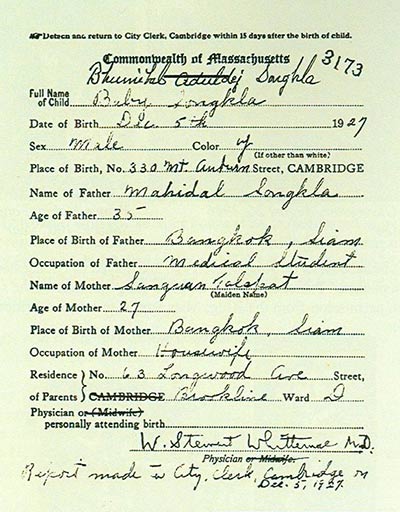 Detach and return to City Clerk, Cambridge within 15 days after the birth of child.
Commonwealth of Massachusetts
3173
Bhumibol Aduldej Songkla
Full Name of Child Baby Songkla
Date of Birth Dec. 5th 1927
Sex Male Color y
(If other than white)
Place of Birth, No. 330 Mt. Auburn Street, CAMBRIDGE
Name of Father Mahidal Songkla
Age of Father 35
Place of Birth of Father Bangkok, Siam
Occupation of Father Medical Student
Name of Mother Sangwan Talapat
(Maiden Name)
Age of Mother 27
Place of Birth of Mother Bangkok, Siam
Occupation of Mother Housewife
Residence No. 63 Longwood Ave Street,
of Parents CAMBRIDGE Brookline Ward D
Physician or (Midwife)
personally attending birth
W. Stewart Whittemore M.D.
Physician or Midwife.
Report made to City Clerk, Cambridge on
Dec. 5, 1927.